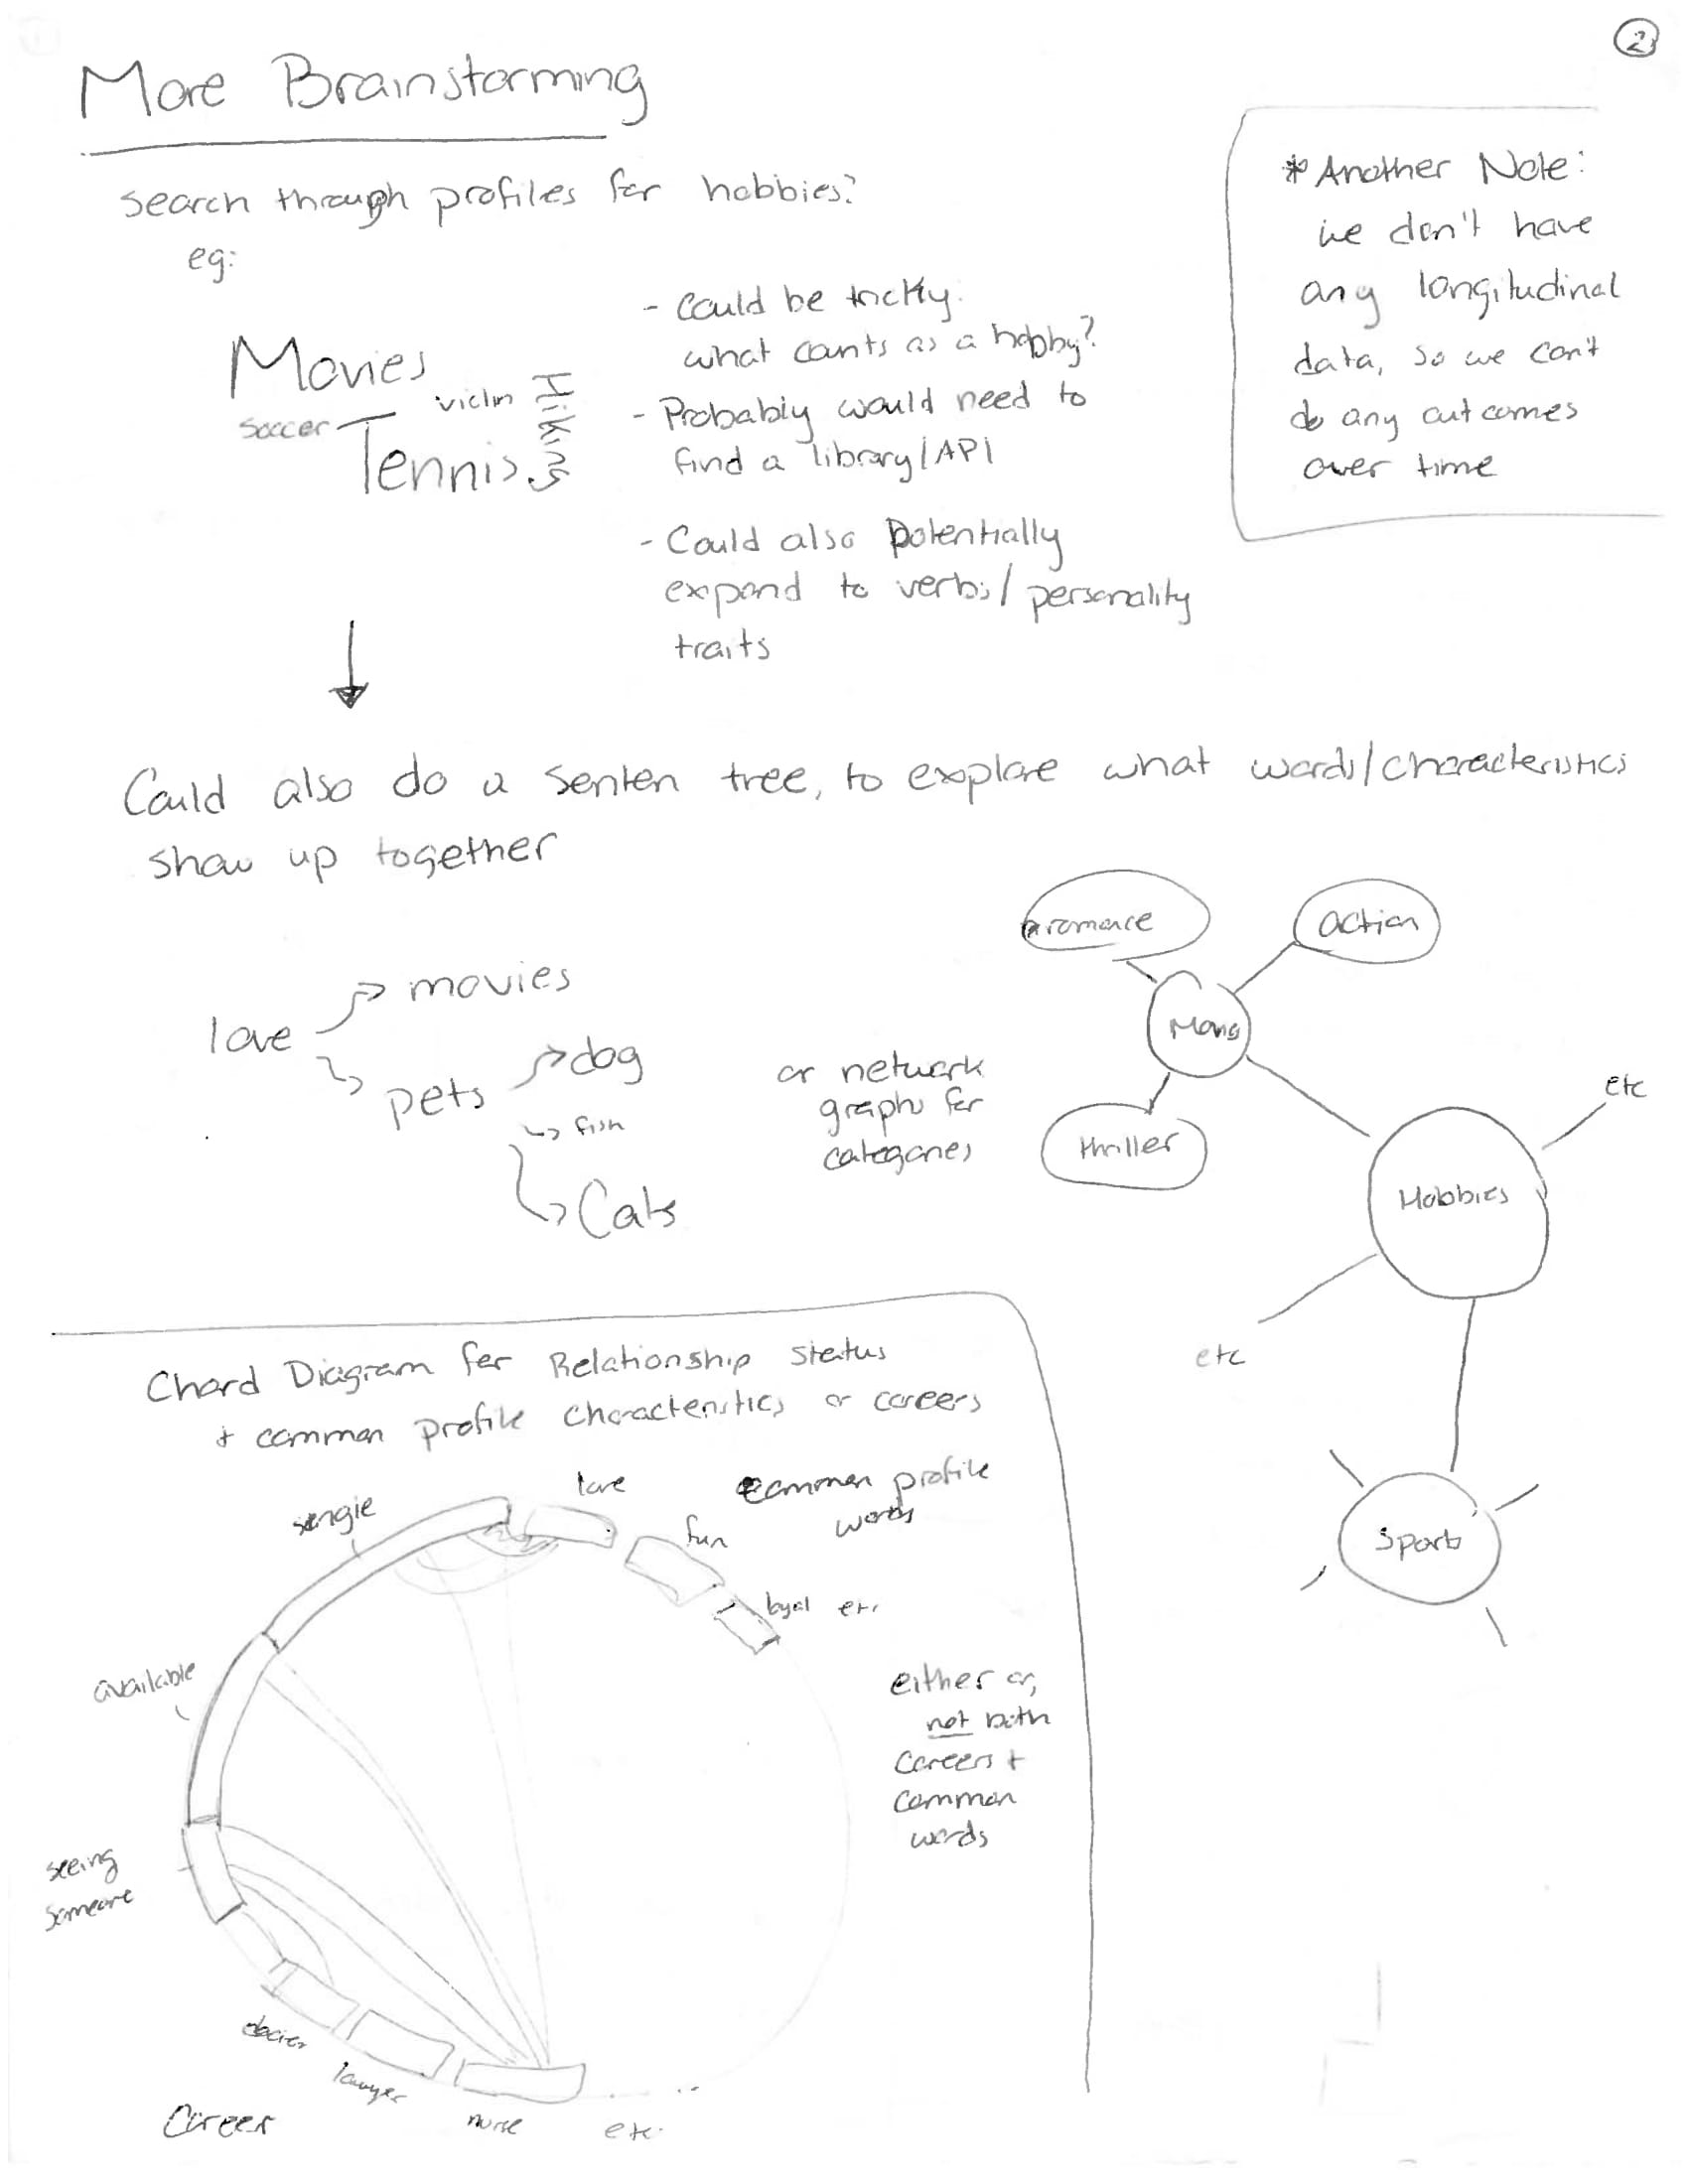 2
More Brainstorming
search through profiles for hobbies?
eg:
Movies
soccer
violin
Hiking
Tennis
- Could be tricky.
what counts as a hobby?
- Probably would need to
find a library/API
- Could also potentially
expand to verbs/personality
traits
* Another Note:
we don't have
any longitudinal
data, so we can't
do any outcomes
over time
Could also do a senten tree, to explore what words/characteristics
show up together
love
movies
pets
dog
fish
Cats
or network
graph for
categories
romance
action
thriller
Hobbies
etc
etc
Sports
Chord Diagram for Relationship status
+ common profile characteristics or careers
single
love
common profile
words
fun
loyal etc
available
either or,
not both
careers +
common
words
seeing
someone
doctor
lawyer
nurse
etc.
Career